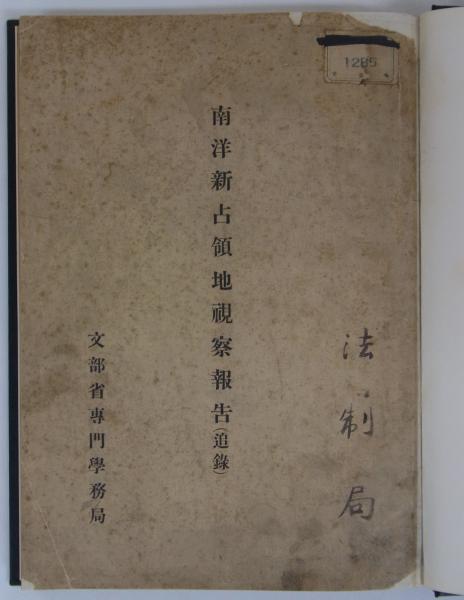 1285
法制局
南洋新占領地視察報告(追錄)
文部省專門學務局